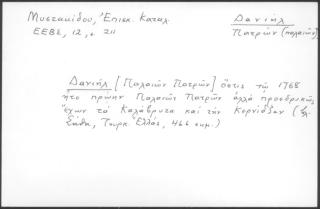 Μυστακίδου, Ἐπισκ. Καταλ.
ΕΕΒΣ, 12, σ. 211
Δανιήλ
Πατρῶν (παλαιῶν)
Δανιήλ [Παλαιῶν Πατρῶν] ὅστις τῷ 1768
ἦτο πρώην Παλαιῶν Πατρῶν ἀλλὰ προεδρικῶς
ἔχων τὰ Καλάβρυτα καὶ τὴν Κερνίτζαν (βλ.
Σάθα, Τουρκ. Ἑλλάς, 466 σημ.)